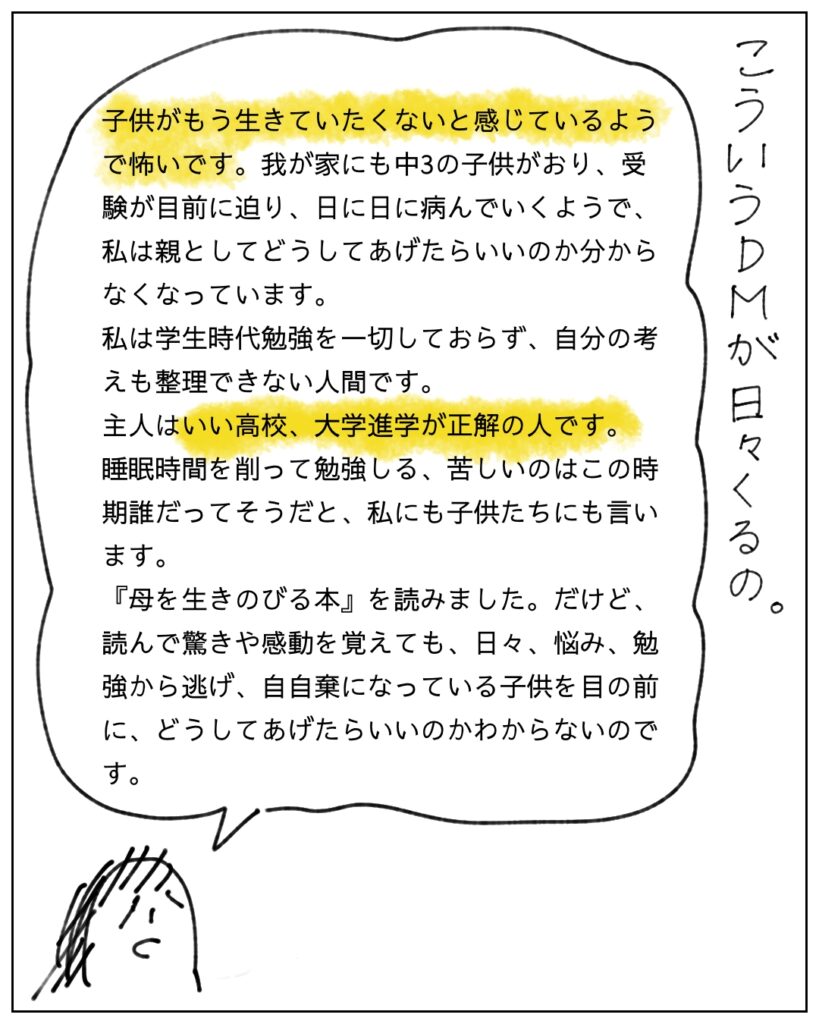 こういうDMが日々くるの。
子供がもう生きていたくないと感じているよう
で怖いです。我が家にも中3の子供がおり、受
験が目前に迫り、日に日に病んでいくようで、
私は親としてどうしてあげたらいいのか分から
なくなっています。
私は学生時代勉強を一切しておらず、自分の考
えも整理できない人間です。
主人はいい高校、大学進学が正解の人です。
睡眠時間を削って勉強しる、苦しいのはこの時
期誰だってそうだと、私にも子供たちにも言い
ます。
『母を生きのびる本』を読みました。だけど、
読んで驚きや感動を覚えても、日々、悩み、勉
強から逃げ、自自棄になっている子供を目の前
に、どうしてあげたらいいのかわからないので
す。